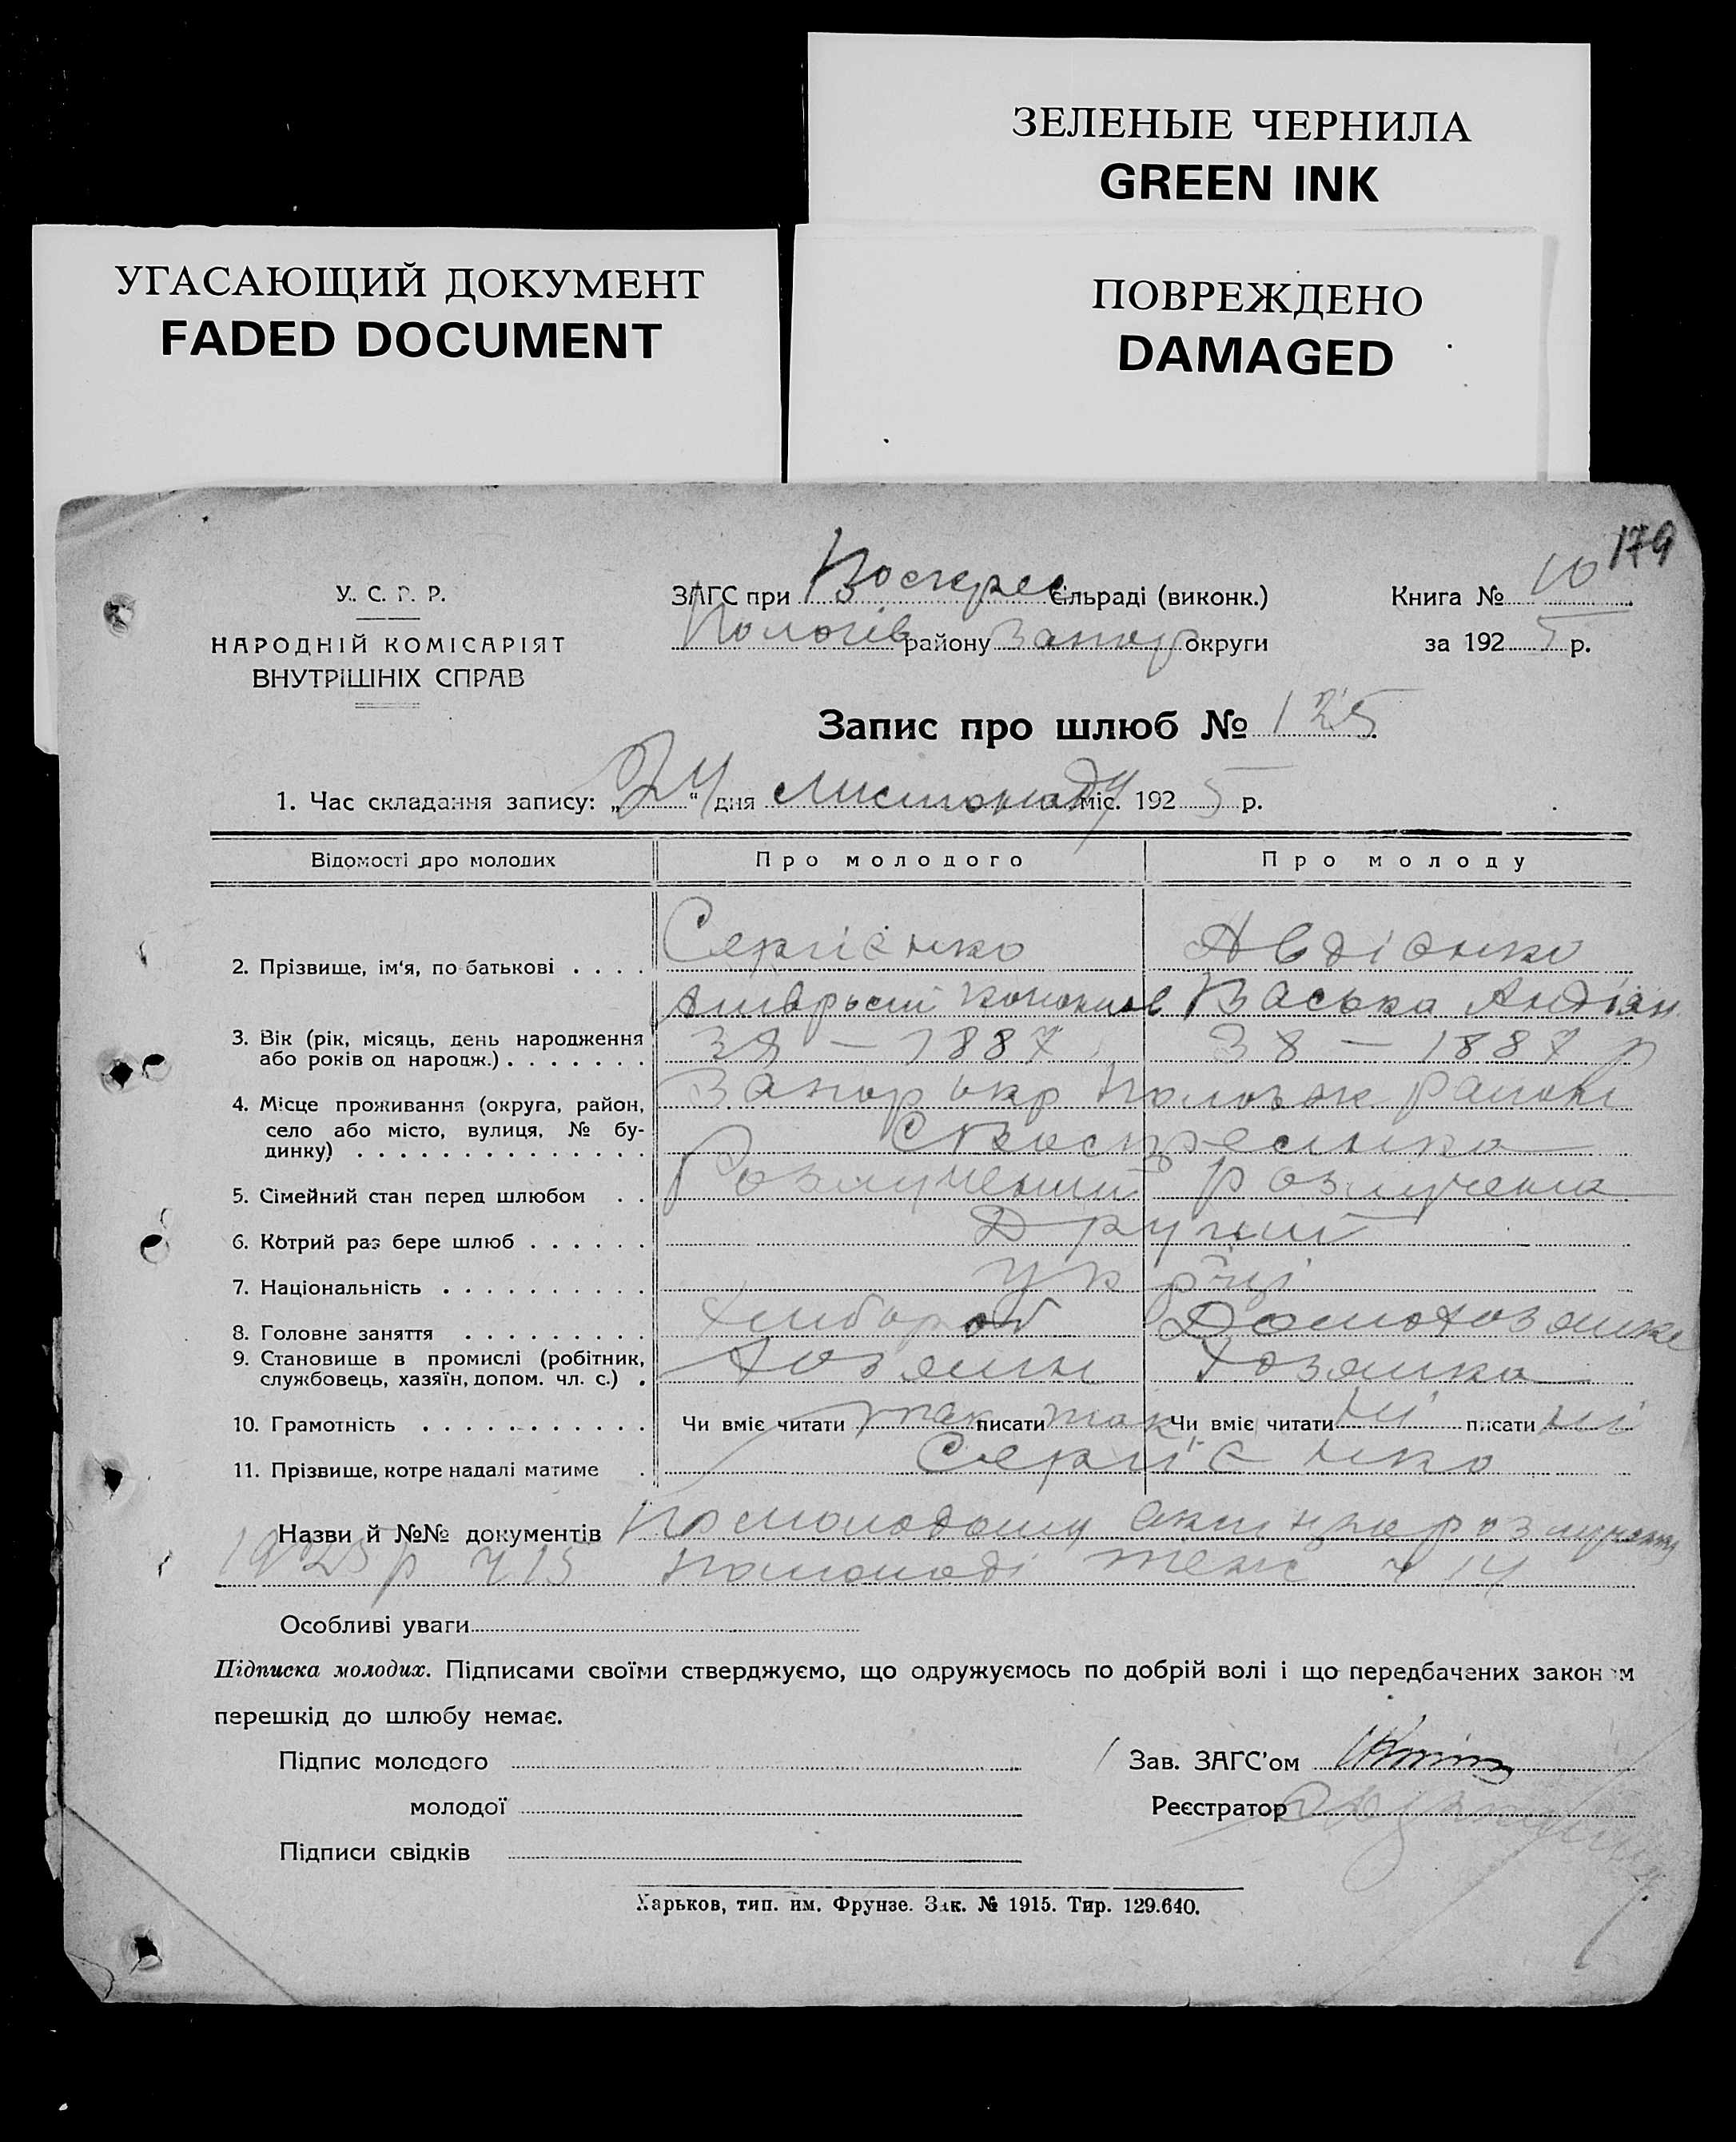 ЗЕЛЕНЫЕ ЧЕРНИЛА
GREEN INK
УГАСАЮЩИЙ ДОКУМЕНТ
FADED DOCUMENT
ПОВРЕЖДЕНО
DAMAGED
179
У. С. Р. Р.
НАРОДНІЙ КОМІСАРІЯТ
ВНУТРІШНІХ СПРАВ
ЗАГС при Воскрес Сільраді (виконк.)
Пологів району Запор округи
Книга № 10
за 1925 р.
Запис про шлюб № 125
1. Час складання запису: „24“ дня листопаду міс. 1925 р.
Відомості про молодих Про молодого Про молоду
2. Прізвище, ім'я, по-батькові . . . . Сергієнко Авдієнко
Васька
3. Вік (рік, місяць, день народження або років од народж.) . . . . . . . 38 — 1887 38 — 1887 р
4. Місце проживання (округа, район, село або місто, вулиця, № будинку) . . . . . . Запор окр район
С Воскресенка
5. Сімейний стан перед шлюбом . . Розлучений розлучена
6. Котрий раз бере шлюб . . . . . . Другий
7. Національність . . . . . . . . . . укрїнці
8. Головне заняття . . . . . . . . . Хлибороб Домохозяйка
9. Становище в промислі (робітник, службовець, хазяїн, допом. чл. с.) . Хозяин Хозяйка
10. Грамотність . . . . . . . . . . . Чи вміє читати так писати так Чи вміє читати ні писати ні
11. Прізвище, котре надалі матиме . Сергієнко
Назви й №№ документів По молодому акт про розлучення
1925 р ч 15 по молоді теж ч 14
Особливі уваги
Підписка молодих. Підписами своїми стверджуємо, що одружуємось по добрій волі і що передбачених законом
перешкід до шлюбу немає.
Підпис молодого
Зав. ЗАГС'ом
молодої
Реєстратор
Підписи свідків
Харьков, тип. им. Фрунзе. Зак. № 1915. Тир. 129.640.